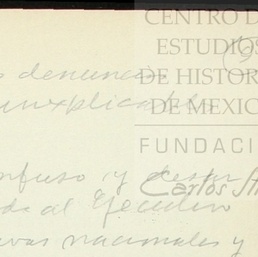 CENTRO D
ESTUDIOS
DE HISTOR
DE MEXIC
FUNDACI
Carlos
denuncia
inexplicable
nfuso y
da al Ejecutivo
vas nacionales y